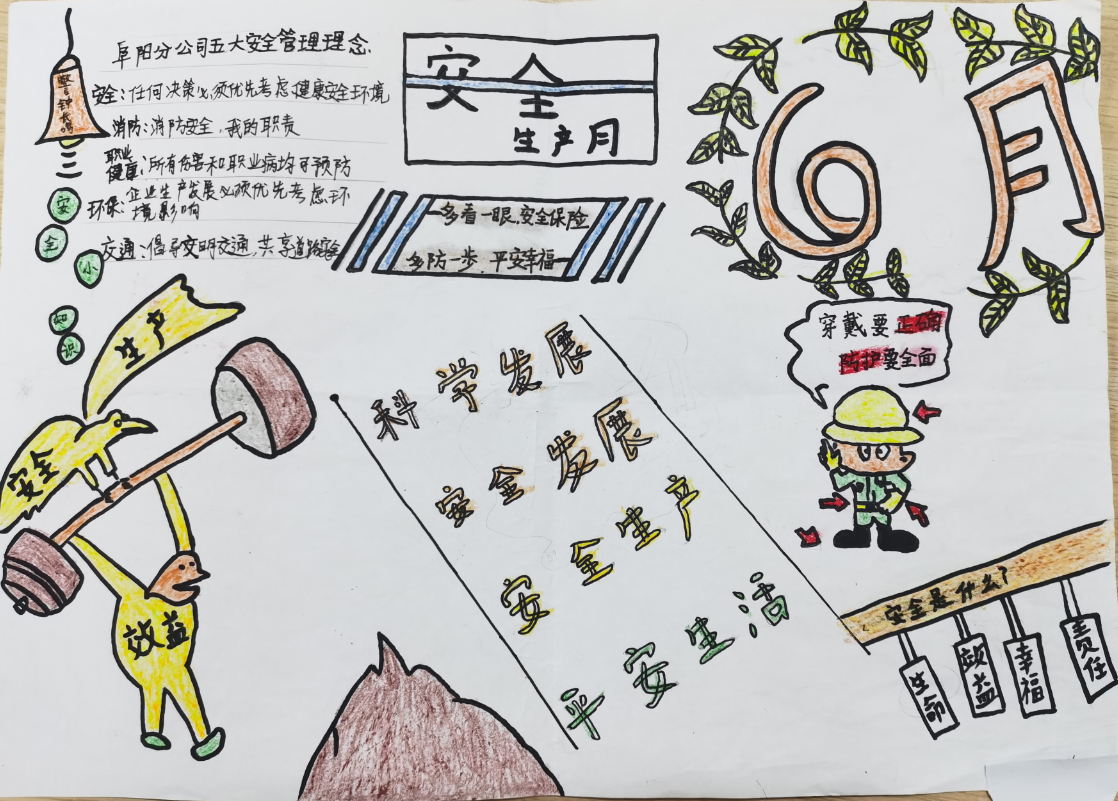 警钟长鸣
阜阳分公司五大安全管理理念
安全:任何决策必须优先考虑健康安全环境
消防:消防安全,我的职责
职业
健康:所有危害和职业病均可预防
环保:企业生产发展必须优先考虑环
境影响
交通:倡导文明交通,共享道路安全
安
全
小
知
识
安全
生产月
多看一眼,安全保险
多防一步,平安幸福
6月
穿戴要正确
防护要全面
生产
安全
效益
科学发展
安全发展
安全生产
平安生活
安全是什么?
生命
效益
幸福
责任